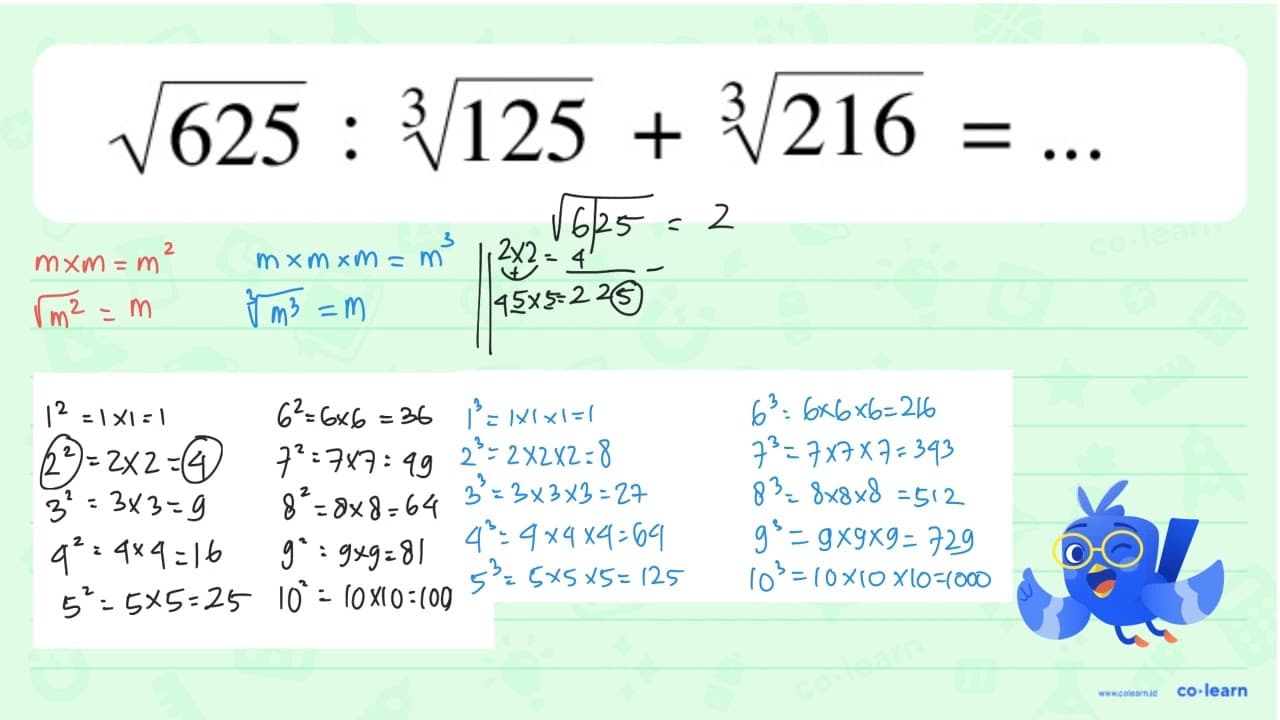 √625 : ∛125 + ∛216 = ...
√625 = 2
m×m = m²
m×m×m = m³
2×2 = 4
+
√m² = m
∛m³ = m
45×5=225
1² = 1×1 = 1
2² = 2×2 = 4
3² = 3×3 = 9
4² = 4×4 = 16
5² = 5×5 = 25
6² = 6×6 = 36
7² = 7×7 = 49
8² = 8×8 = 64
9² = 9×9 = 81
10² = 10×10 = 100
1³ = 1×1×1 = 1
2³ = 2×2×2 = 8
3³ = 3×3×3 = 27
4³ = 4×4×4 = 64
5³ = 5×5×5 = 125
6³ = 6×6×6 = 216
7³ = 7×7×7 = 343
8³ = 8×8×8 = 512
9³ = 9×9×9 = 729
10³ = 10×10×10 = 1000
www.colearn.id co·learn